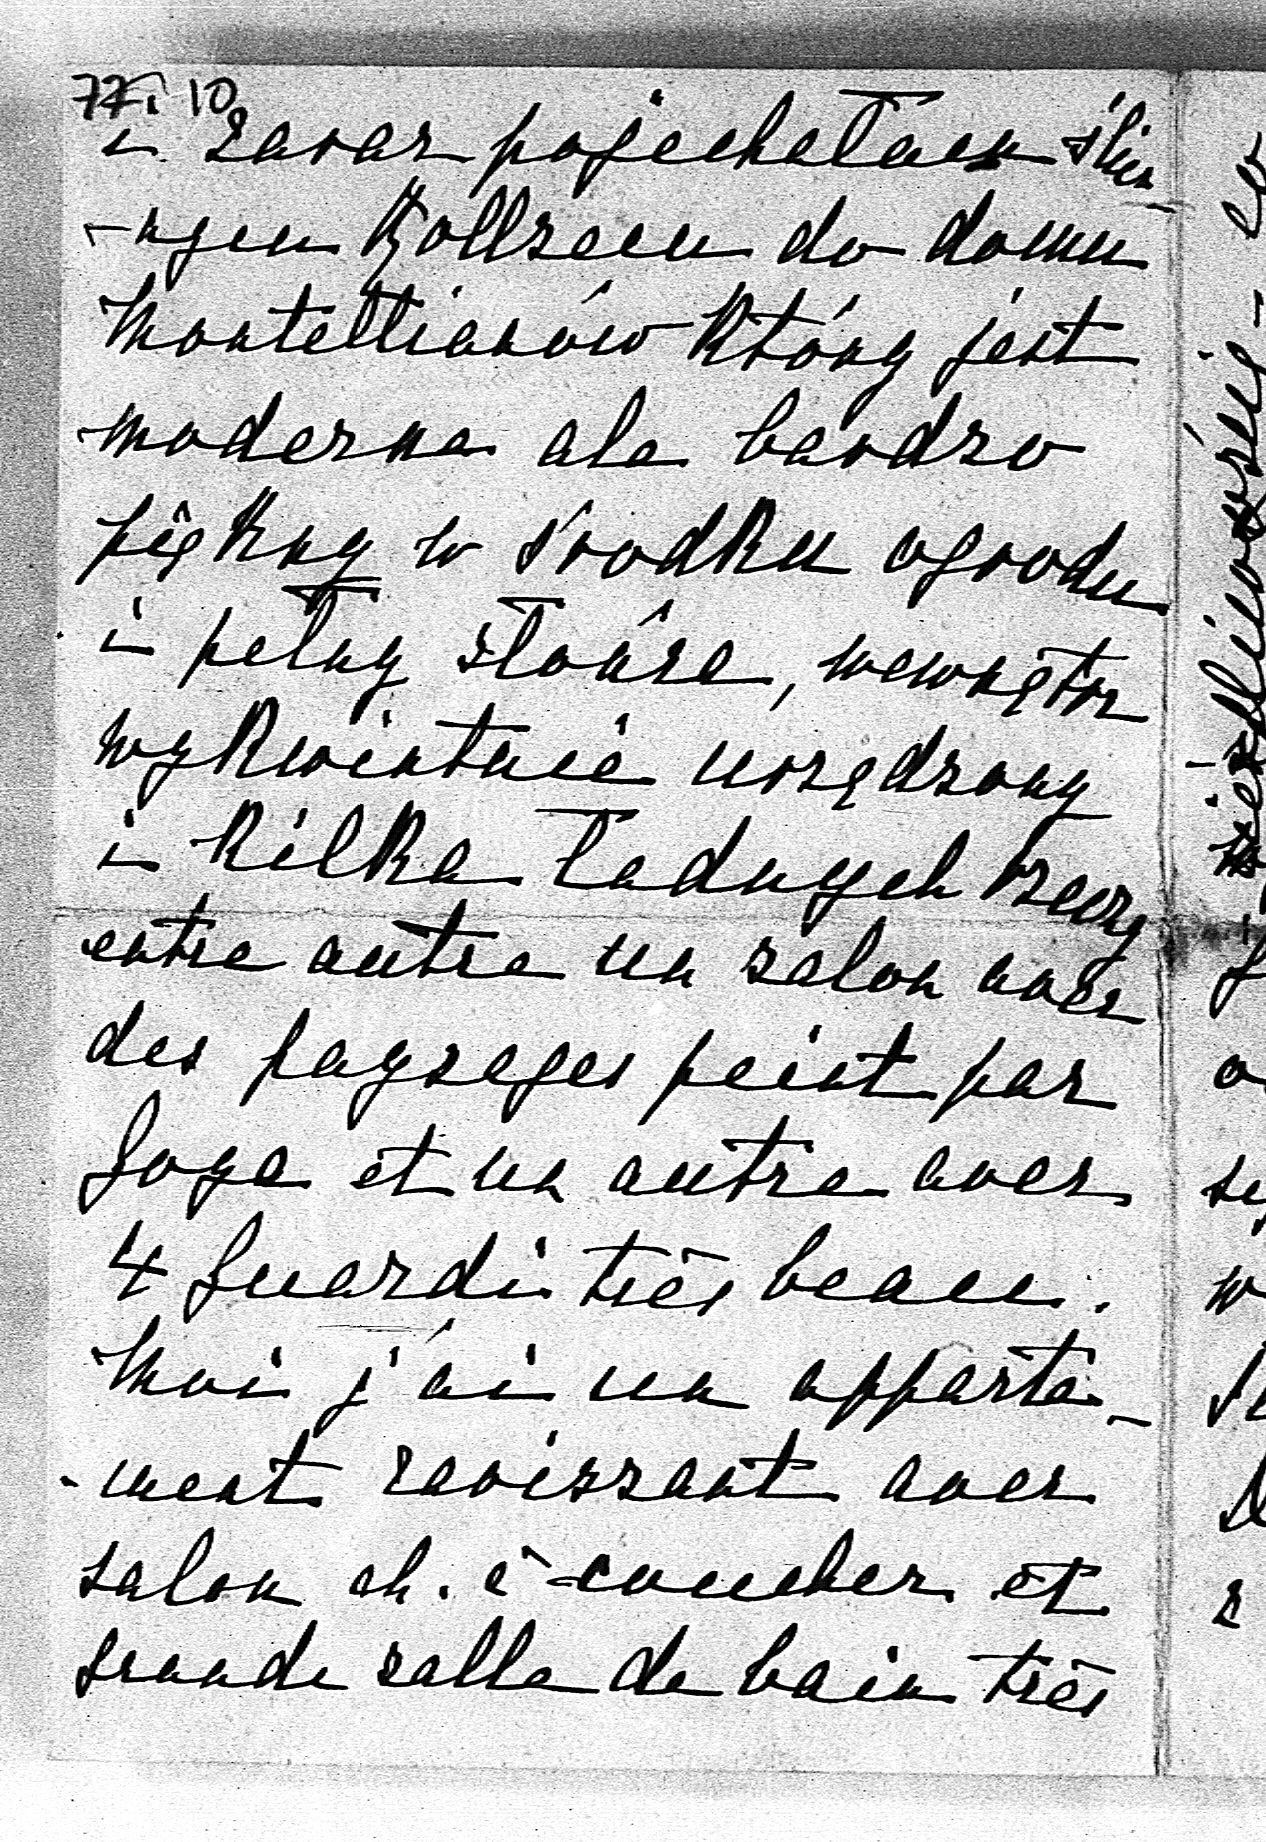 i zaraz pojechałam ślicz-
-nym Rollsem do domu
Montelianów który jest
moderne ale bardzo
piękny w środku ogrodu
i pełny słońca, wewnątrz
wykwintnie urządzony
i kilka ładnych rzeczy
entre autre un salon avec
des paysages peint par
Goya et un autre avec
4 Guardi très beau.
Moi j'ai un apparte-
-ment ravissant avec
salon ch. à coucher et
grande salle de bain très